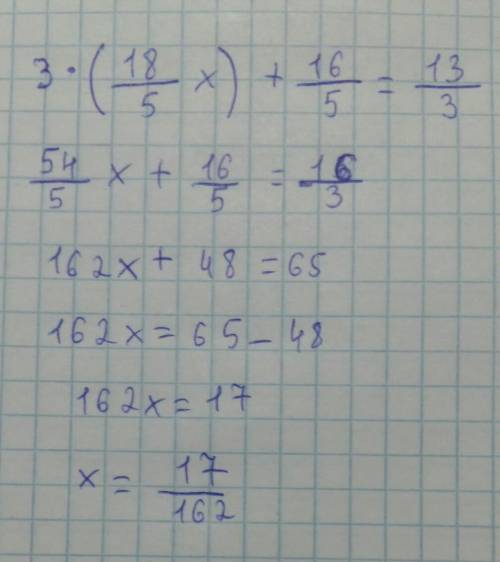 3 · (18/5 x) + 16/5 = 13/3
54/5 x + 16/5 = 16/3
162x + 48 = 65
162x = 65 - 48
162x = 17
x = 17/162